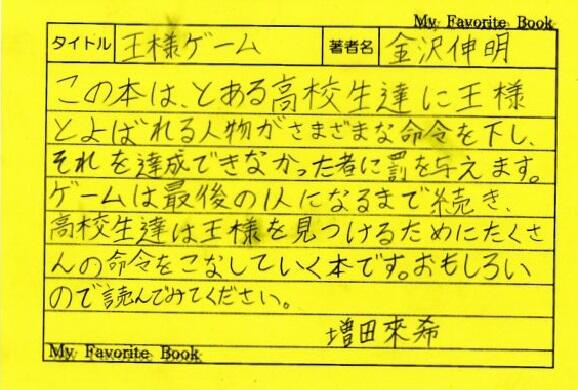 My Favorite Book
タイトル 王様ゲーム 著者名 金沢伸明
この本は、とある高校生達に王様
とよばれる人物がさまざまな命令を下し、
それを達成できなかった者に罰を与えます。
ゲームは最後の1人になるまで続き、
高校生達は王様を見つけるためにたくさ
んの命令をこなしていく本です。おもしろい
ので読んでみてください。
増田來希
My Favorite Book